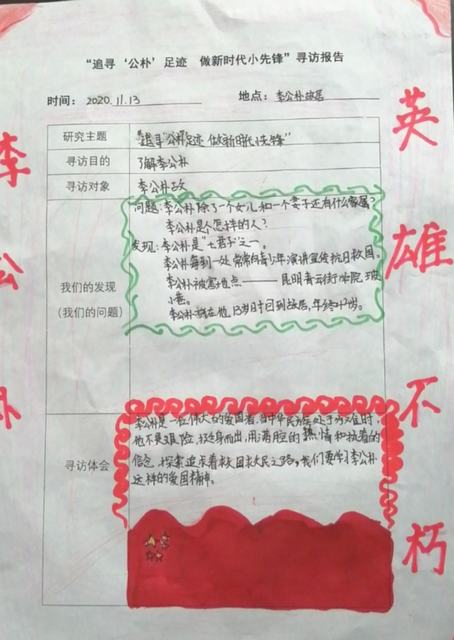 “追寻‘公朴’足迹 做新时代小先锋”寻访报告
时间: 2020.11.13 地点: 李公朴故居
研究主题 “追寻‘公朴’足迹 做新时代小先锋”
寻访目的 了解李公朴
寻访对象 李公朴
我们的发现
(我们的问题)
问题:李公朴除了一个女儿和一个妻子还有什么家属?
李公朴是个怎样的人?
发现:李公朴是“七君子”之一。
李公朴每到一处常常向青少年演讲宣传抗日救国。
李公朴被害地点——昆明青云街学院坡
小巷。
李公朴 13岁时回到故居,年终
寻访体会
李公朴是一位伟大的爱国者,当中华民族处于为难时,
他不畏艰险,挺身而出,用满腔的热情和执着的
信念,探索追求着救国救民之路。我们要学习李公朴
这样的爱国精神。
李公朴
英雄不朽